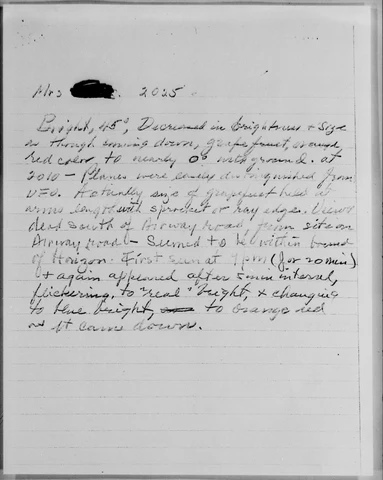 Mrs 2025.
Bright, 45°, Decreased in brightness & size
as though coming down, grapefruit, orange,
red color, to nearly 0° with ground. at
2010 - Planes were easily distinguished from
UFO. Actually size of grapefruit held at
arms length with sprocket or hay edge. Viewed
dead South of Airway road, from site on
Airway road - Seemed to be within bound
of Horizon. First seen at 7 pm (for 20 min)
& again appeared after 5 min interval,
flickering, to "real" bright, & changing
to blue bright, to orange red
as it came down.